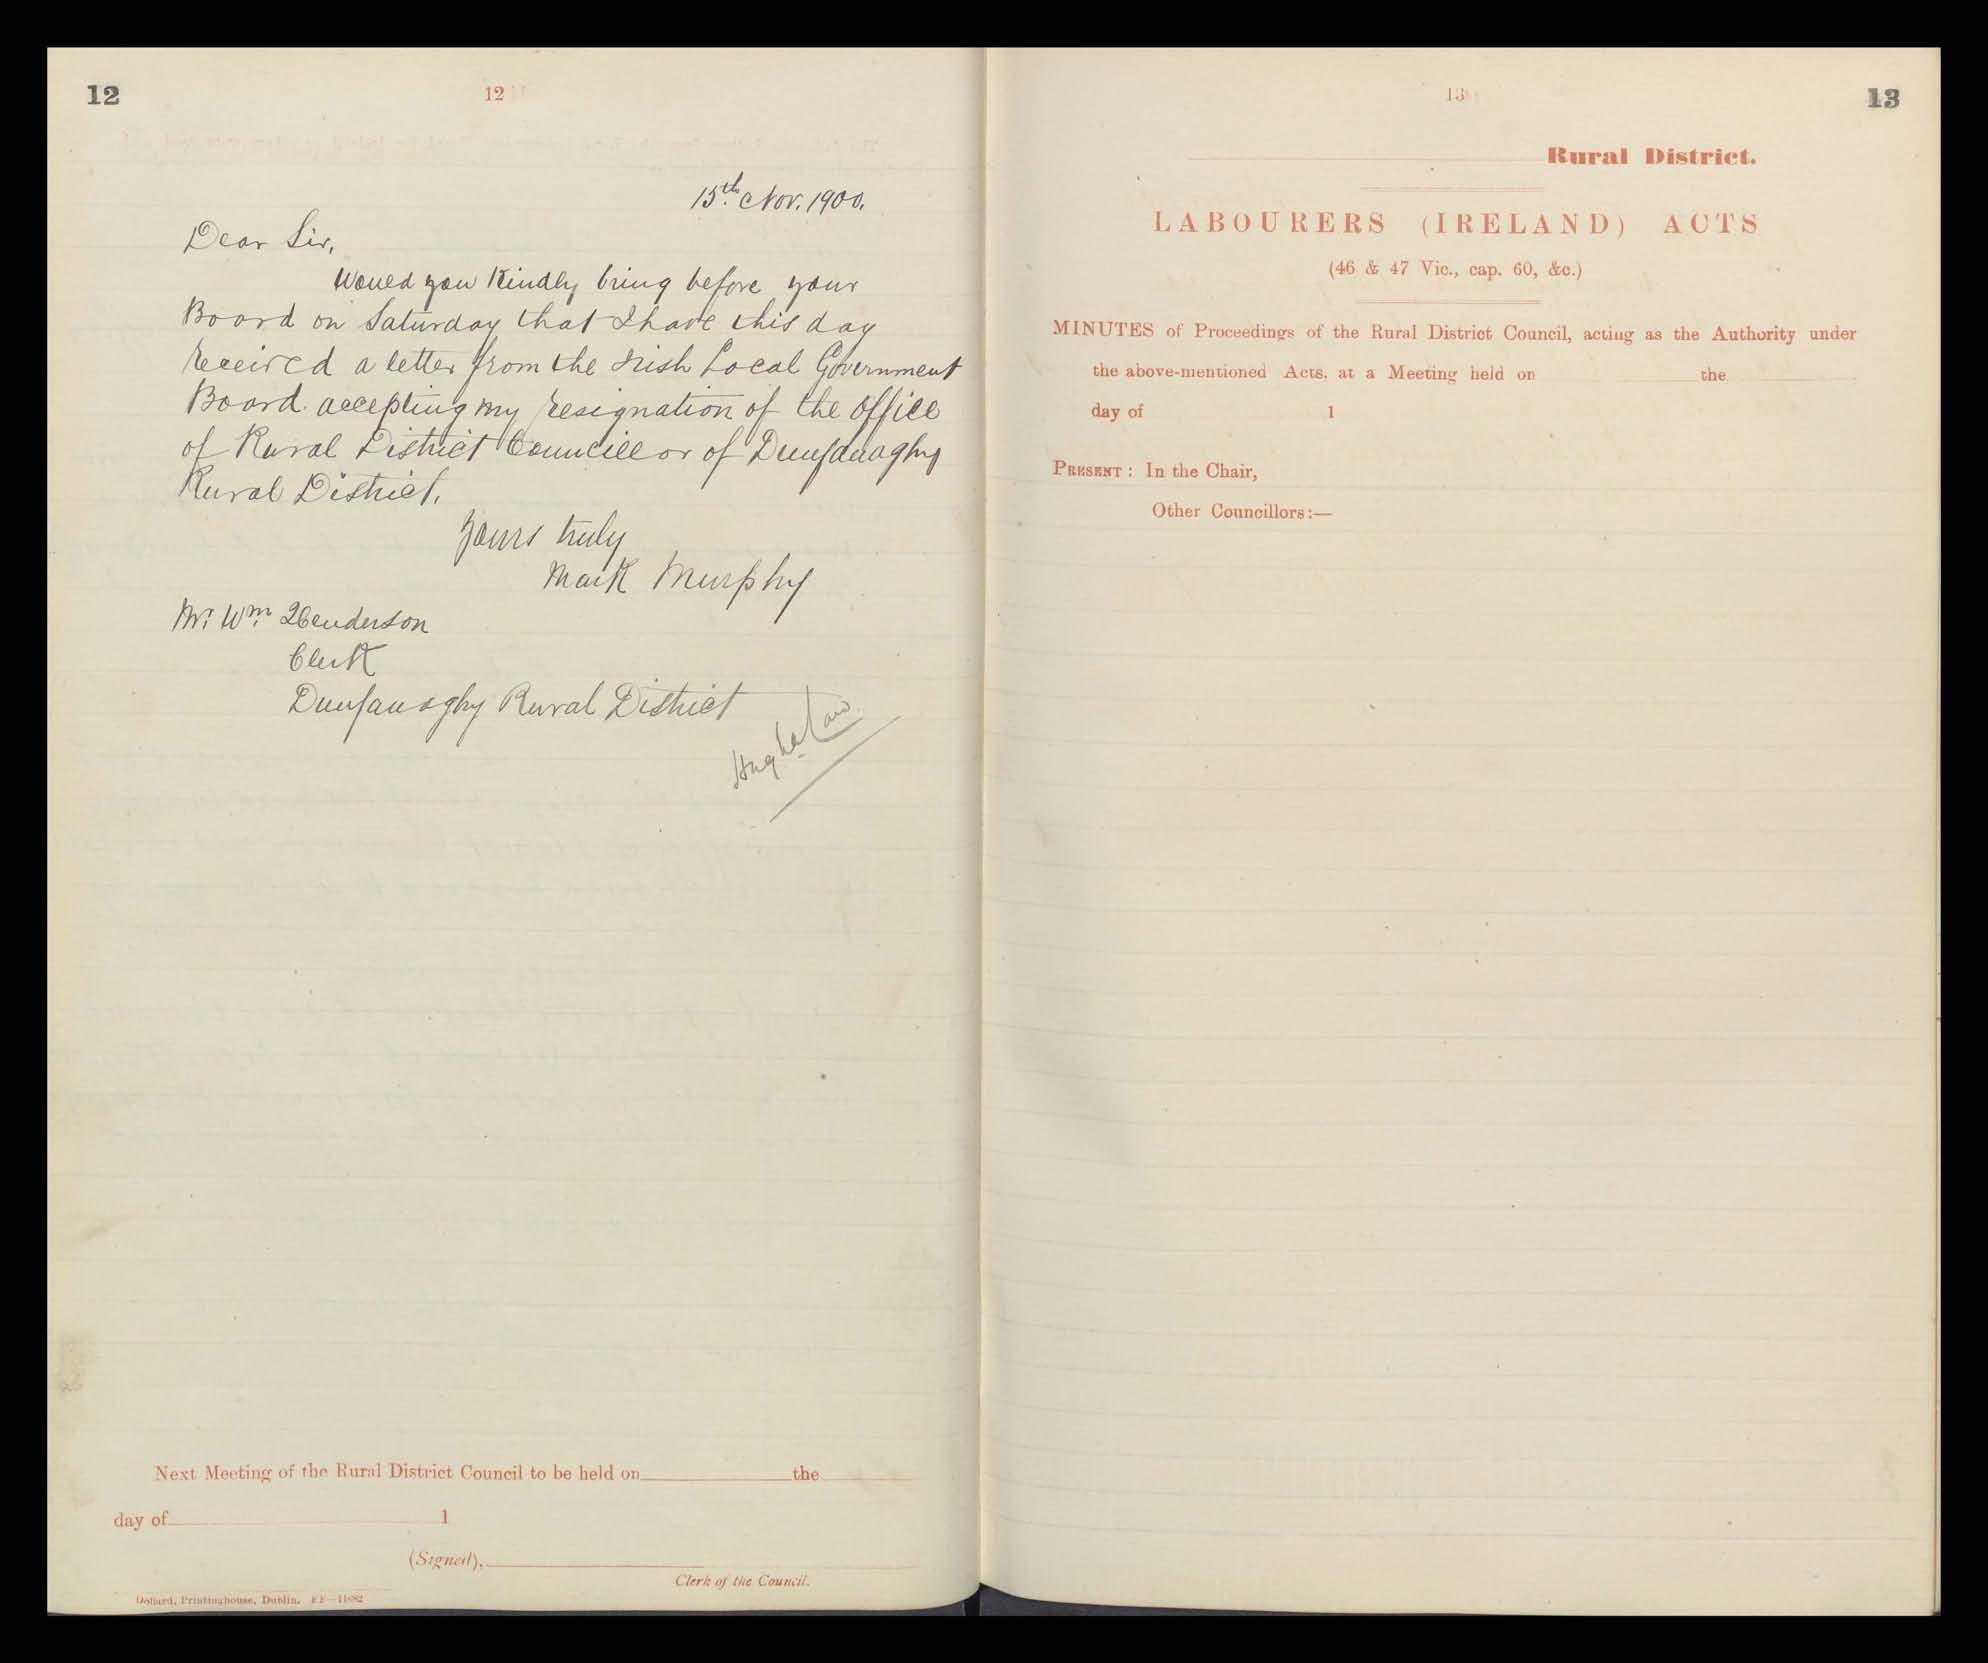 12
12
15th Nov. 1900.
Dear Sir,
Would you Kindly bring before your
Board on Saturday that I have this day
received a letter from the Irish Local Government
Board accepting my resignation of the office
of Rural District Councillor of Dunfanaghy
Rural District.
Yours truly
Mark Murphy
Mr. Wm. Henderson
Clerk
Dunfanaghy Rural District
Hugh a Law
Next Meeting of the Rural District Council to be held on the
day of 1
(Signed),
Clerk of the Council.
Dollard, Printinghouse, Dublin.
13
13
Rural District.
LABOURERS (IRELAND) ACTS
(46 & 47 Vic., cap. 60, &c.)
MINUTES of Proceedings of the Rural District Council, acting as the Authority under
the above-mentioned Acts, at a Meeting held on the
day of 1
PRESENT: In the Chair,
Other Councillors:—